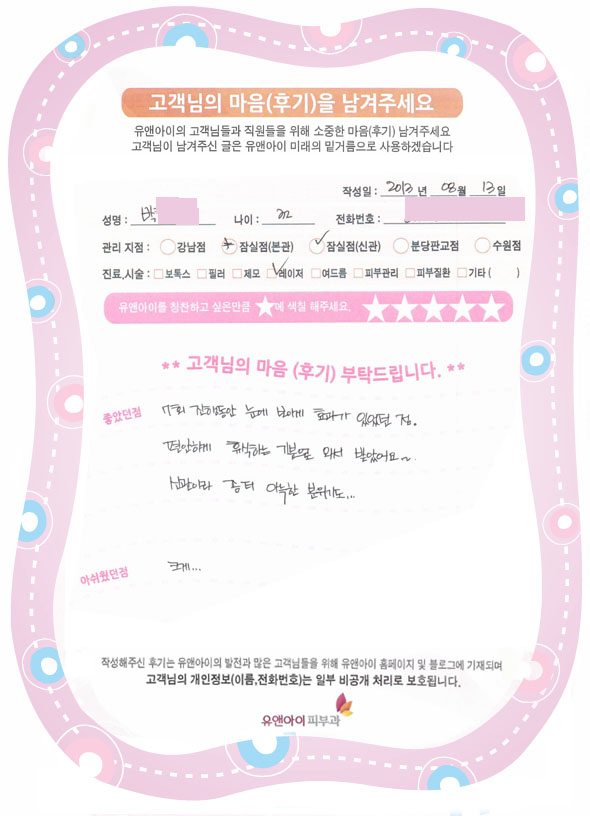 고객님의 마음(후기)을 남겨주세요
유앤아이의 고객님들과 직원들을 위해 소중한 마음(후기) 남겨주세요
고객님이 남겨주신 글은 유앤아이 미래의 밑거름으로 사용하겠습니다
작성일 : 2013 년 08월 13일
성명 : 박 나이 : 전화번호 :
관리 지점 : 강남점 잠실점(본관) 잠실점(신관) 분당판교점 수원점
진료,시술 : 보톡스 필러 제모 레이저 여드름 피부관리 피부질환 기타 ( )
유앤아이를 칭찬하고 싶은만큼 ★에 색칠 해주세요. ★★★★★
** 고객님의 마음 (후기) 부탁드립니다. **
좋았던점 7회 진행동안 눈에 보이게 효과가 있었던 점.
편안하게 휴식하는 기분으로 와서 받았어요~
신관이라 좀더 아늑한 분위기도...
아쉬웠던점
작성해주신 후기는 유앤아이의 발전과 많은 고객님들을 위해 유앤아이 홈페이지 및 블로그에 기재되며
고객님의 개인정보(이름,전화번호)는 일부 비공개 처리로 보호됩니다.
유앤아이 피부과